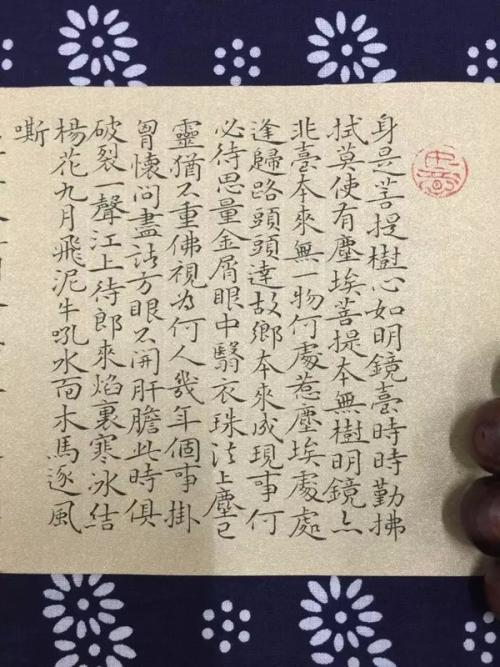 身是菩提樹心如明鏡臺時時勤拂
拭莫使有塵埃菩提本無樹明鏡亦
非臺本來無一物何處惹塵埃處處
逢歸路頭頭達故鄉本來成現事何
必待思量金屑眼中翳衣珠法上塵己
靈猶不重佛視為何人幾年個事掛
胷懷問盡諸方眼不開肝膽此時俱
破裂一聲江上待郎來焰裏寒冰結
楊花九月飛泥牛吼水面木馬逐風
嘶